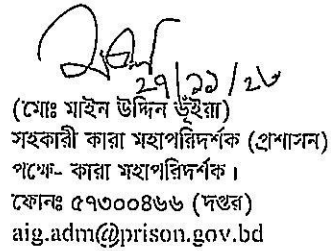 (মোঃ মাইন উদ্দিন ভূঁইয়া)
সহকারী কারা মহাপরিদর্শক (প্রশাসন)
পক্ষে- কারা মহাপরিদর্শক।
ফোনঃ ৫৭৩০০৪৬৬ (দপ্তর)
aig.adm@prison.gov.bd